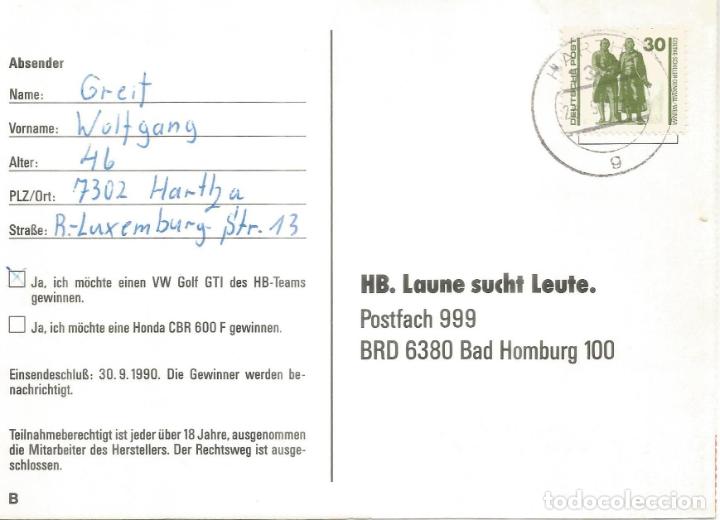 Absender
Name: Greif
Vorname: Wolfgang
Alter: 46
PLZ/Ort: 7302 Hartha
Straße: R.-Luxemburg-Str. 13
Ja, ich möchte einen VW Golf GTI des HB-Teams
gewinnen.
Ja, ich möchte eine Honda CBR 600 F gewinnen.
Einsendeschluß: 30.9.1990. Die Gewinner werden be-
nachrichtigt.
Teilnahmeberechtigt ist jeder über 18 Jahre, ausgenommen
die Mitarbeiter des Herstellers. Der Rechtsweg ist ausge-
schlossen.
B
DEUTSCHE POST
30
GOETHE-SCHILLER-DENKMAL · WEIMAR
g
HB. Laune sucht Leute.
Postfach 999
BRD 6380 Bad Homburg 100
todocoleccion